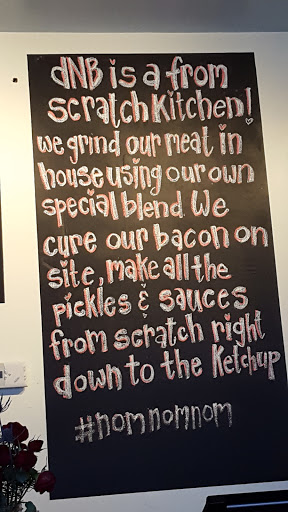 dNB is a from
scratch Kitchen!
we grind our meat in
house using our own
special blend. We
cure our bacon on
site, make all the
pickles & sauces
from scratch right
down to the Ketchup
#nomnomnom